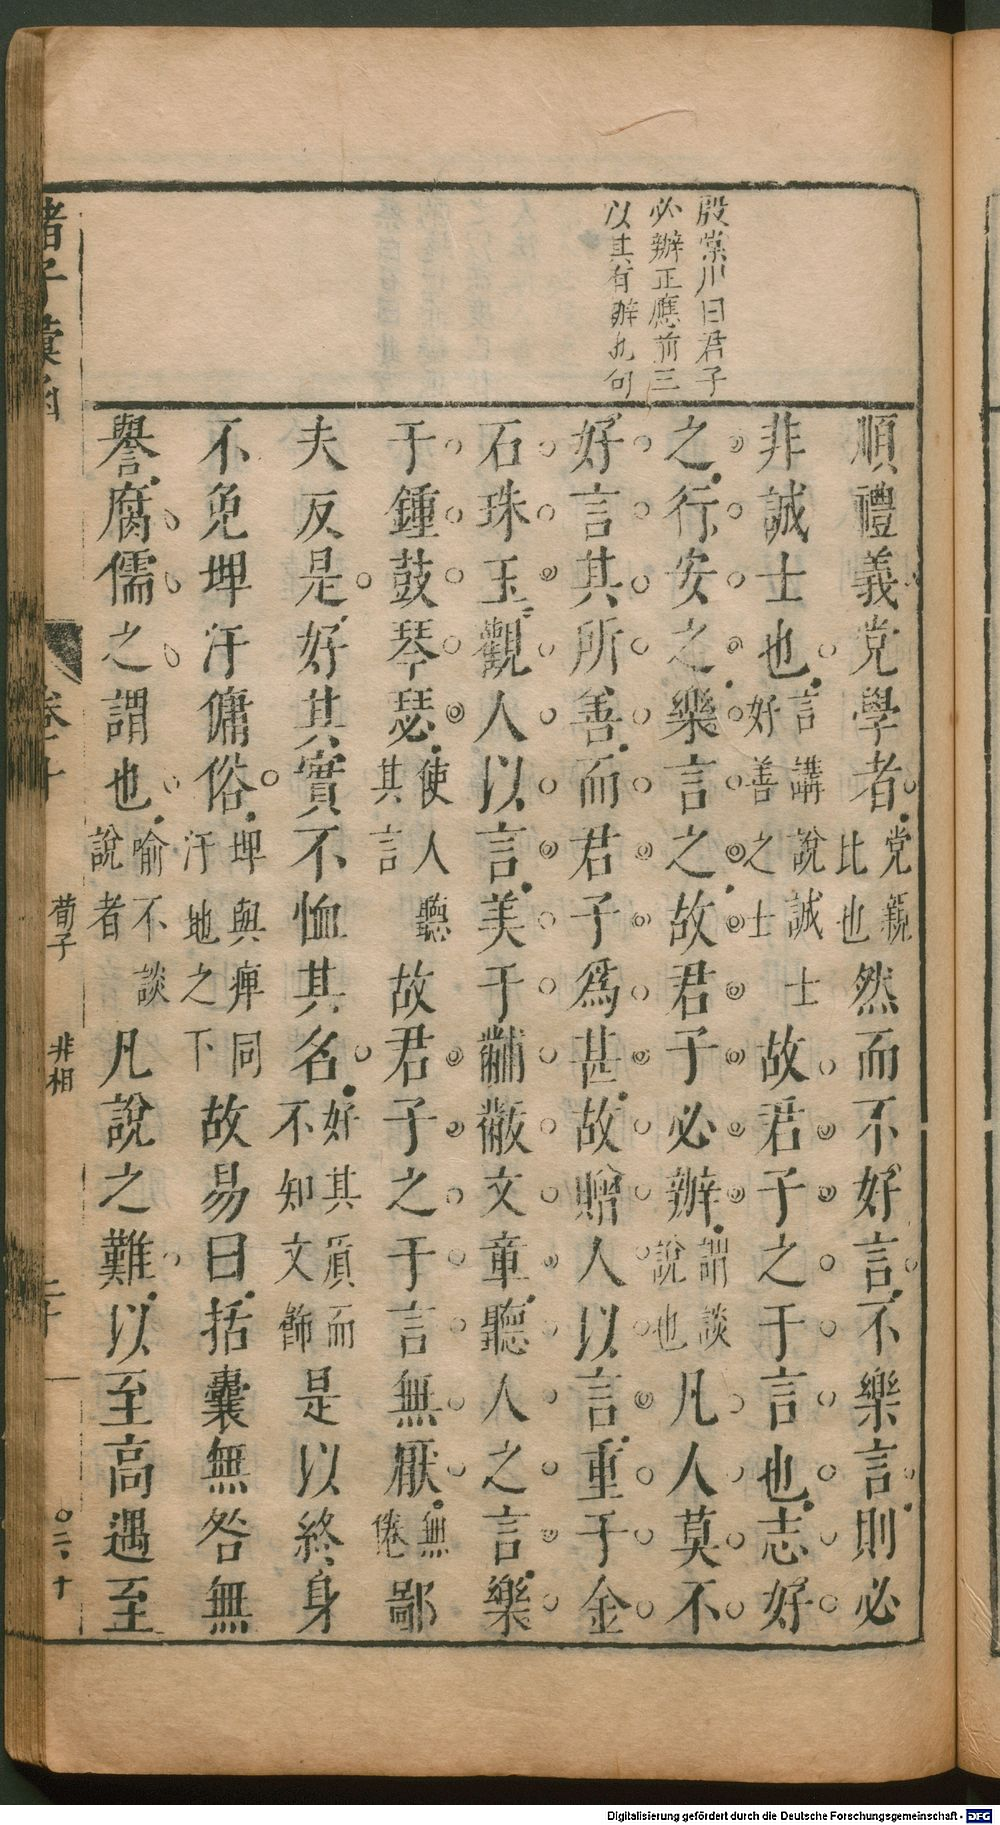 殷棠川曰君子
必辦正應前三
以其有辦也句
順禮義党學者党親比也然而不好言不樂言則必
非誠士也言講說誠士好善之士故君子之于言也志好
之行安之樂言之故君子必辦謂談說也凡人莫不
好言其所善而君子為甚故贈人以言重于金
石珠玉觀人以言美于黼黻文章聽人之言樂
于鍾鼓琴瑟使人聽其言故君子之于言無厭無倦鄙
夫反是好其實不恤其名好其質而不知文飾是以終身
不免埤汙傭俗埤與痺同汙地之下故易曰括囊無咎無
譽腐儒之謂也喻不談說者凡說之難以至高遇至
諸子彙函
荀子
非相
Digitalisierung gefördert durch die Deutsche Forschungsgemeinschaft - DFG